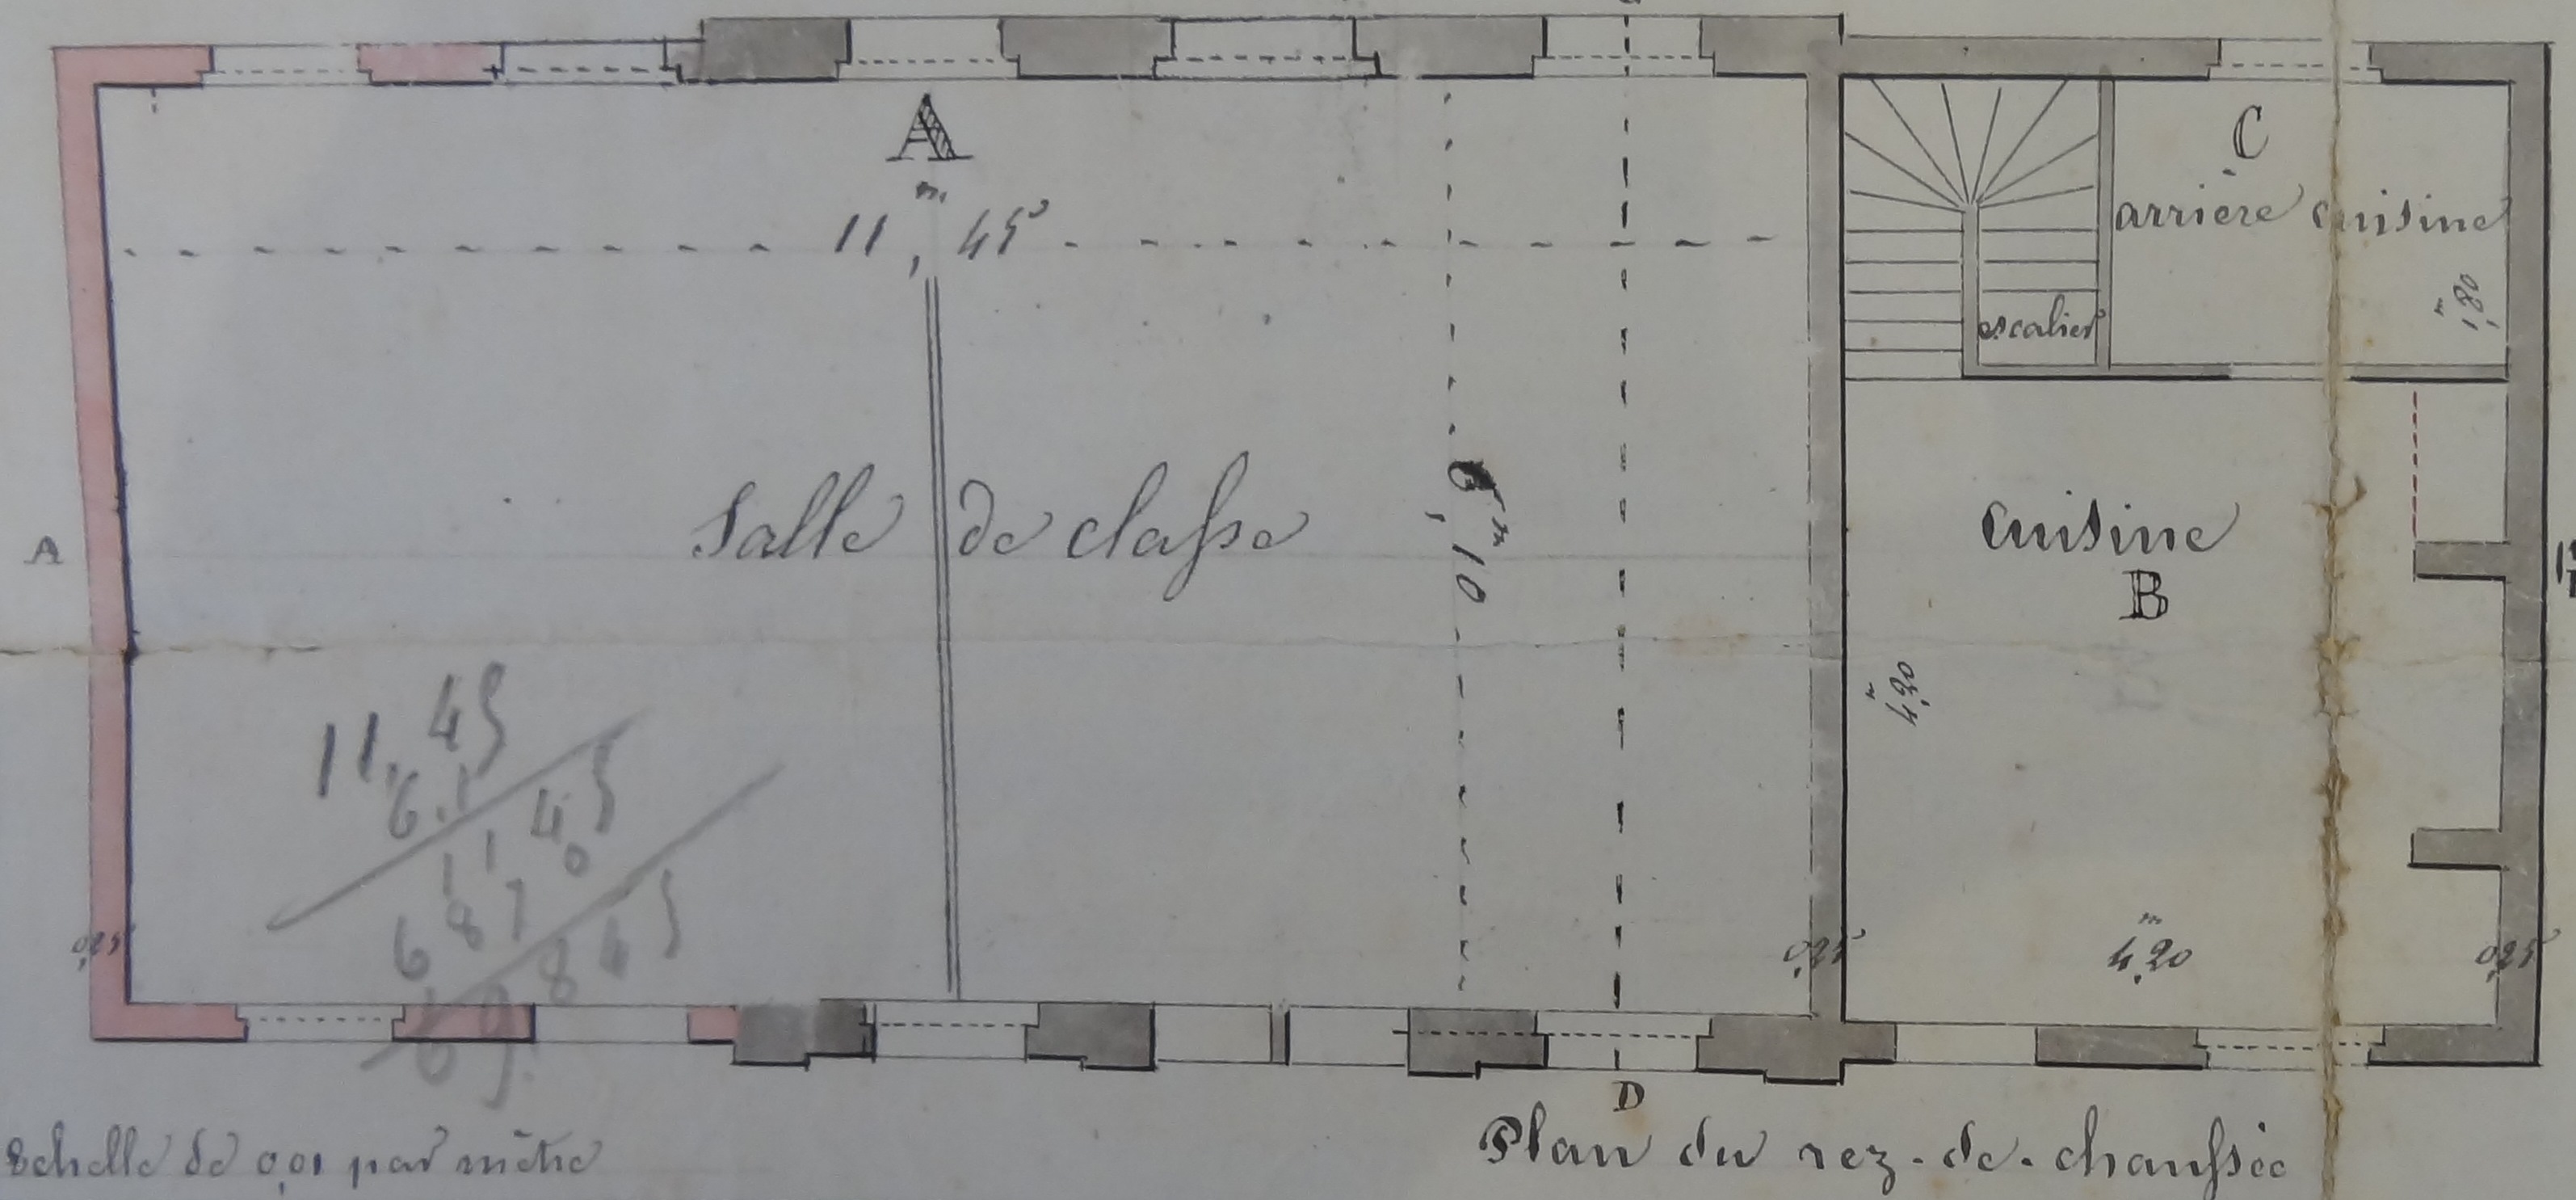 A
m
11,45
C
arrière cuisine
1,80
m
escalier
Salle de classe
6,10
m
cuisine
B
A
4,20
m
11,45
6.1
1145
6870
69845
69.
0,25
0,25
m
4,20
0,25
D
Echelle de 0,01 par mètre
Plan du rez-de-chaussée